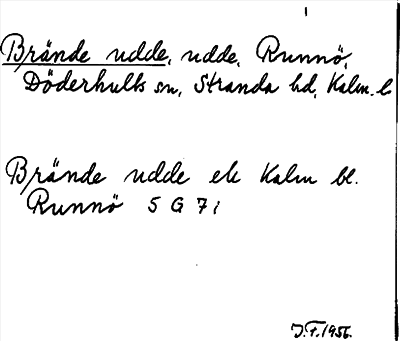 Brände udde, udde, Runnö,
Döderhults sn, Stranda hd, Kalm. l.
Brände udde ek Kalm bl.
Runnö 5 G 7 i
J.F. 1956.